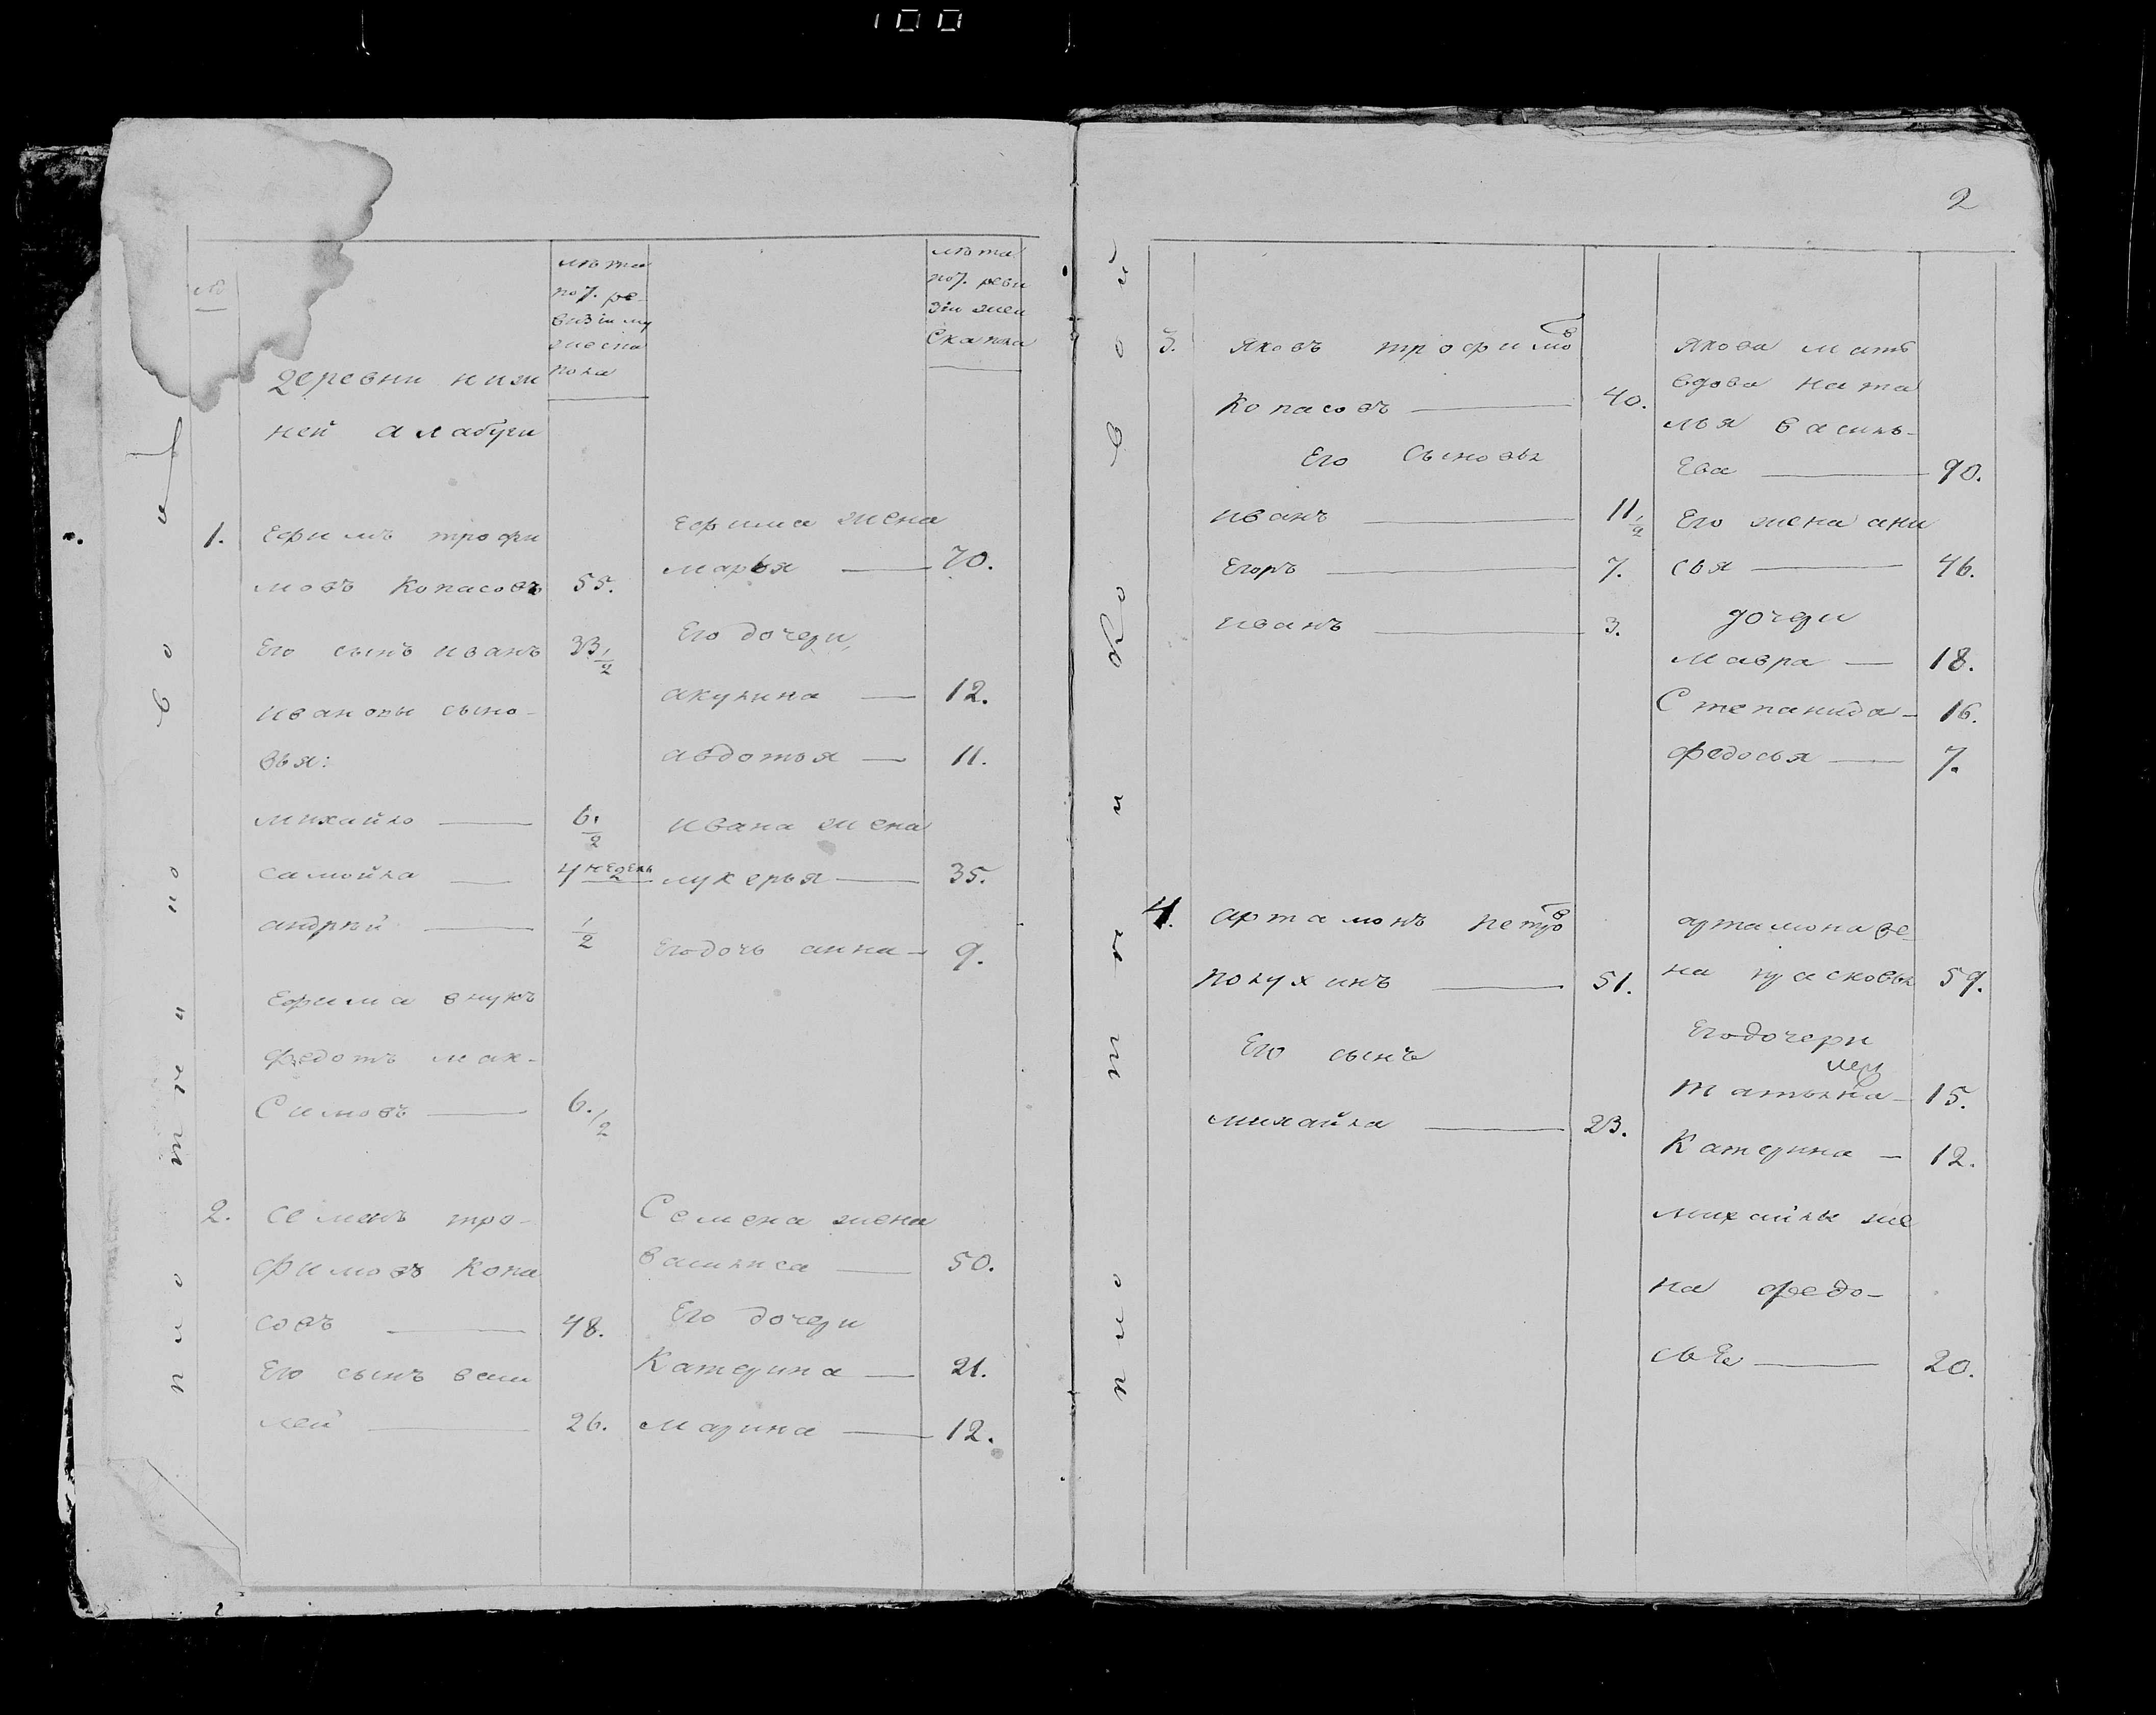 100
№
лѣта
по 7. ре-
визіи му
жеска
пола
лѣта
по 7. реви
зіи жен
скаго пола
деревни ниж
ней алабуги
1. Ефимъ трофи
мовъ Копасовъ 55.
Его сынъ иванъ 33 1/2
ивановы сыно-
вья:
михайло 6. 1/2
самойла 4 недель
андрѣй 1/2
Ефима внукъ
федотъ мак-
симовъ 6. 1/2
Ефима жена
марья 70.
Его дочери,
акулина 12.
авдотья 11.
ивана жена
лукерья 35.
Его дочь анна 9.
2. семенъ тро-
фимовъ Копа
совъ 48.
Его сынъ васи
лей 26.
Семена жена
василиса 50.
Его дочери
Катерина 21.
марина 12.
2
3. яковъ трофимов
Копасовъ 40.
Его сыновья
иванъ 11 1/2
Егоръ 7.
иванъ 3.
якова мать
вдова ната
лья василь-
Ева 90.
Его жена ани
сья 46.
дочери
мавра 18.
Степанида 16.
федосья 7.
4. артамонъ петров
полухинъ 51.
Его сынъ
михайла 23.
артамона же-
на прасковья 59.
Его дочери
татьяна 15.
Катерина 12.
михайлы же
на федо-
сье 20.